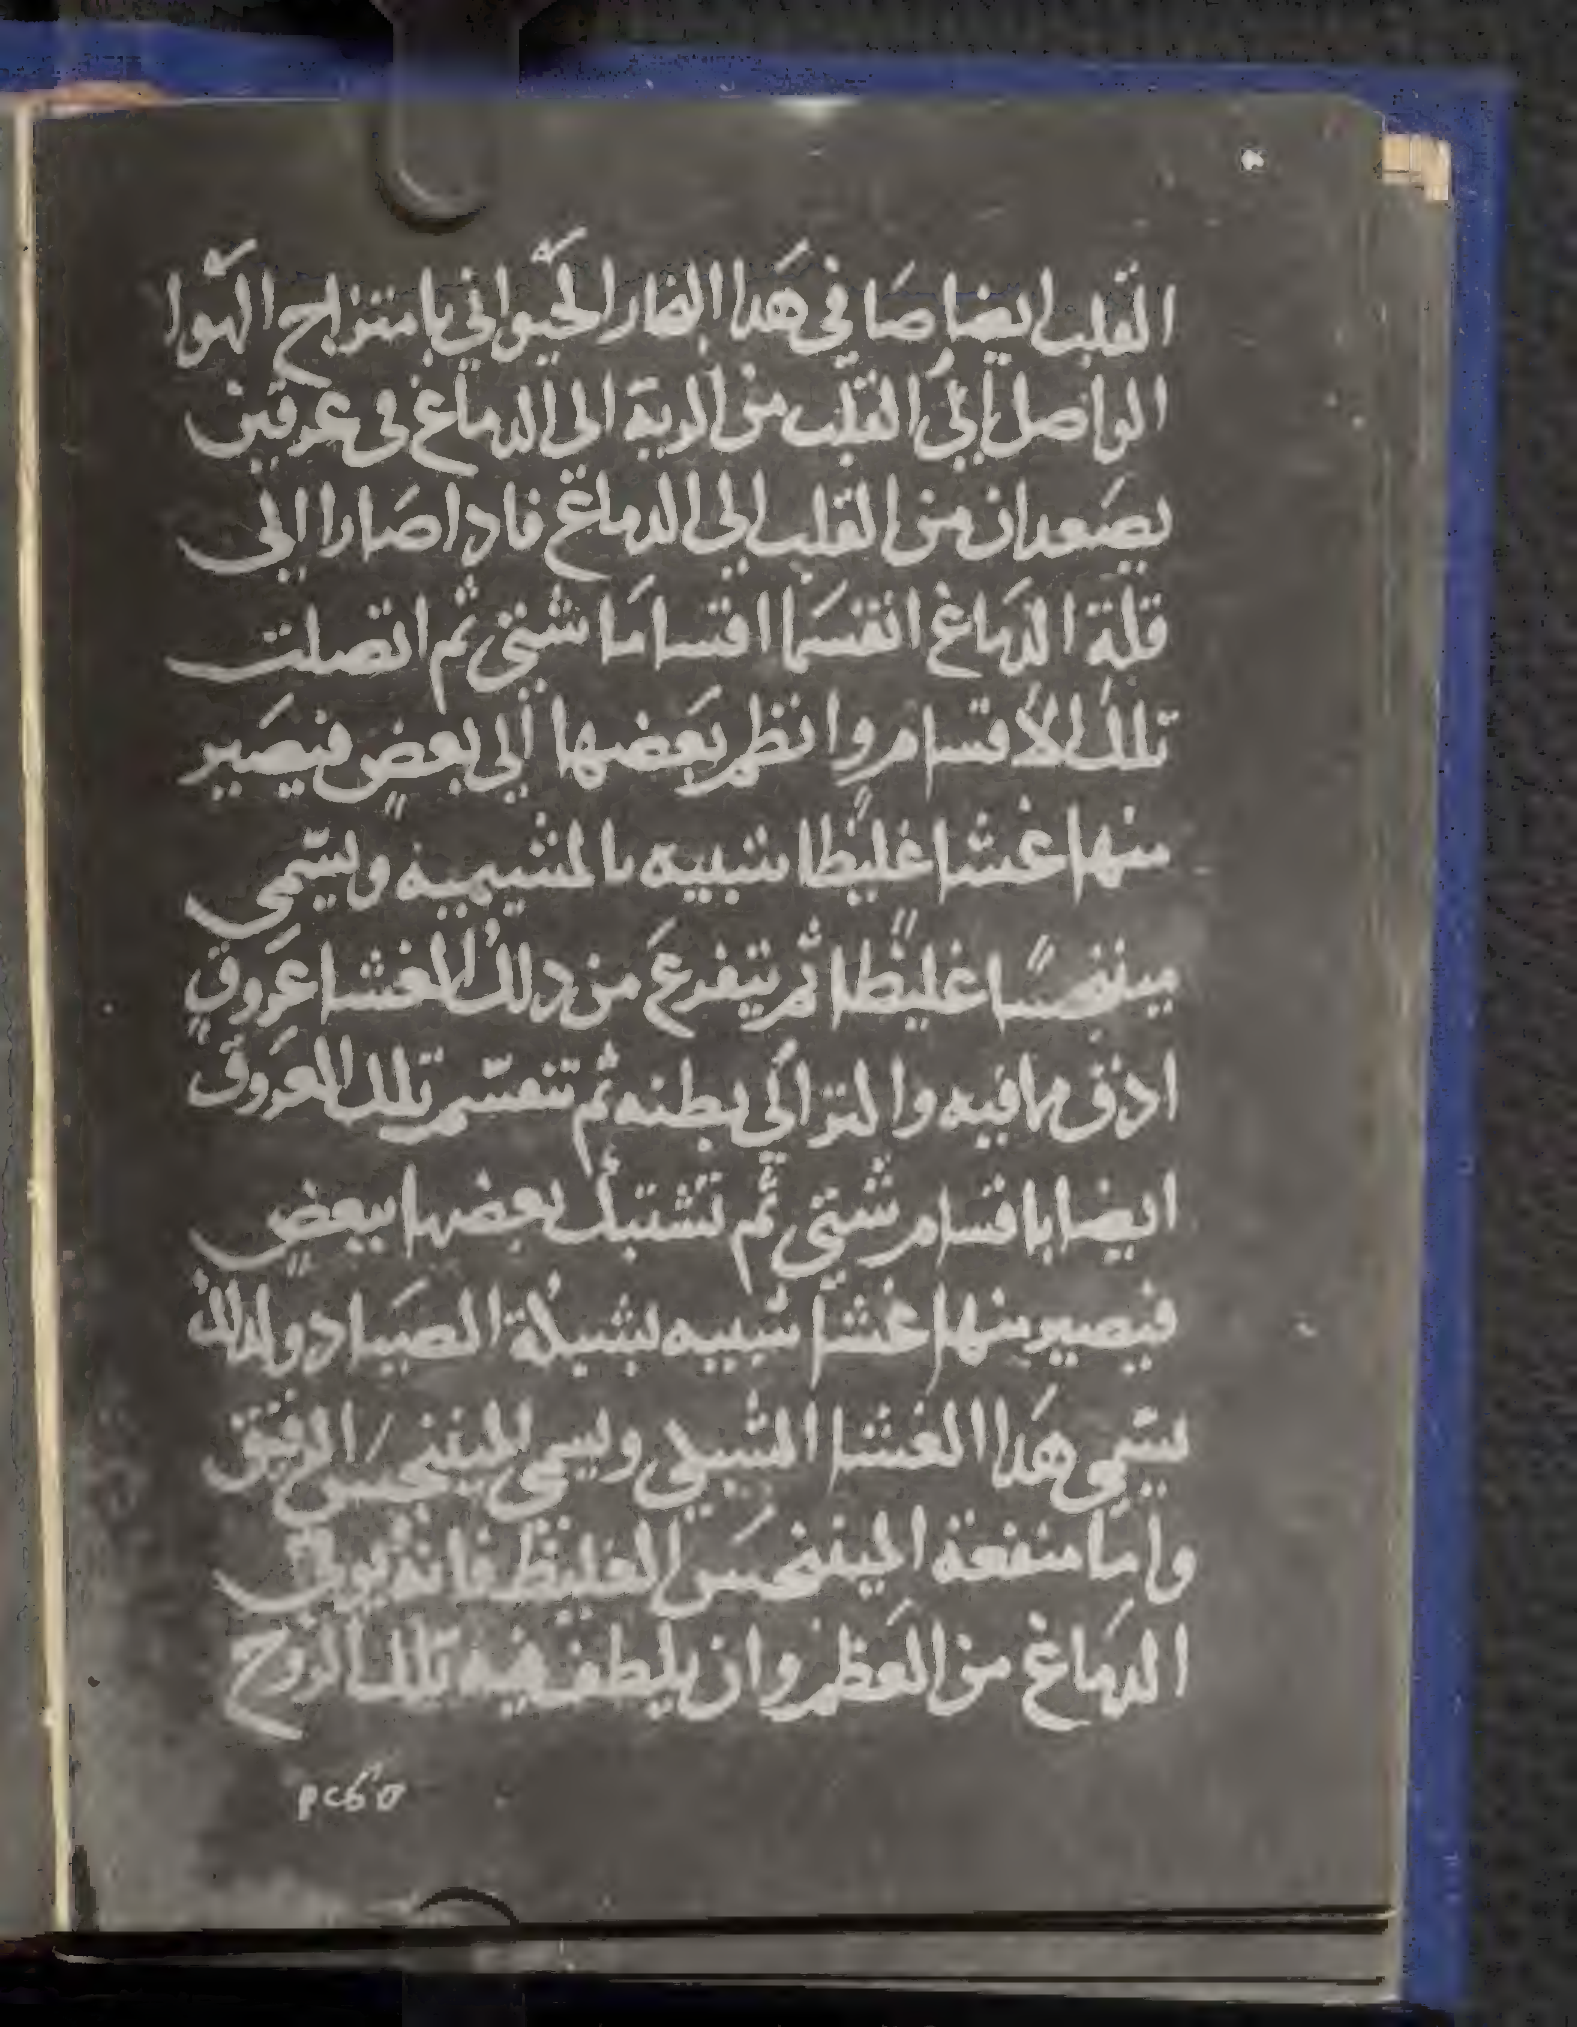 القلب ايضا صافي هدا البخار الحيواني بامتزاج الهوا
الواصل الى القلب من الرية الى الدماغ في عرقين
يصعدان من القلب الى الدماغ فادا صارا الى
قلة الدماغ انقسما اقساما شتى ثم اتصلت
تلك الاقسام وانظم بعضها الى بعض فيصير
منها غشا غليظا شبيه بالمشيمية ويسمى
مينغسا غليظا ثم يتفرع من دلك الغشا عروق
ادق مافيه والتزالي بطنه ثم تنقسم تلك العروق
ايضا باقسام شتى ثم تشتبك بعضها ببعض
فيصير منها غشا شبيه بشبكة الصياد ولدلك
يسمى هدا الغشا الشبكي ويسمى المينخس الرقيق
واما منفعة المينخس الغليظ فانه يوقى
الدماغ من العظم وان يلطف فيه تلك الروح